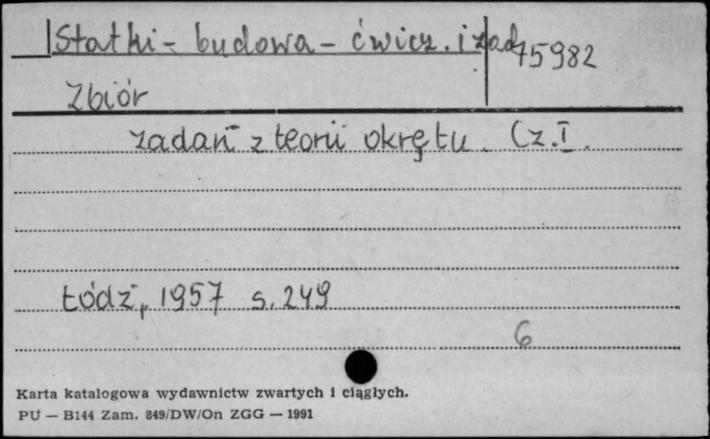 Statki - budowa - ćwicz. i zad. 75982
Zbiór
zadań z teorii okrętu. Cz. I.
Łódź, 1957 s. 249
6
Karta katalogowa wydawnictw zwartych i ciągłych.
PU — B144 Zam. 849/DW/On ZGG — 1991